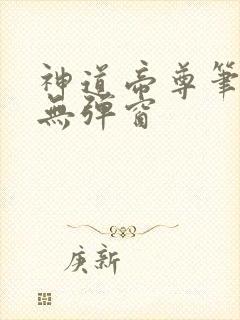 神道帝尊筆
無彈窗
庚新